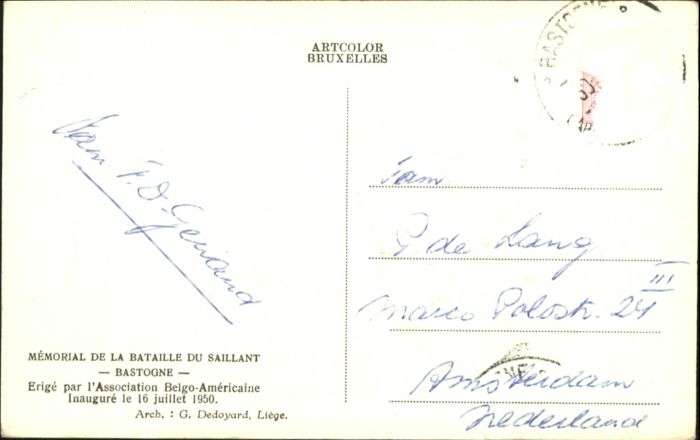 ARTCOLOR
BRUXELLES
BASTOGNE
Fam F.D. Geirand
MÉMORIAL DE LA BATAILLE DU SAILLANT
— BASTOGNE —
Erigé par l'Association Belgo-Américaine
Inauguré le 16 juillet 1950.
Arch, : G. Dedoyard, Liége.
Fam
P de Lang
Marco Polostr. 24 III
Amsterdam
Nederland